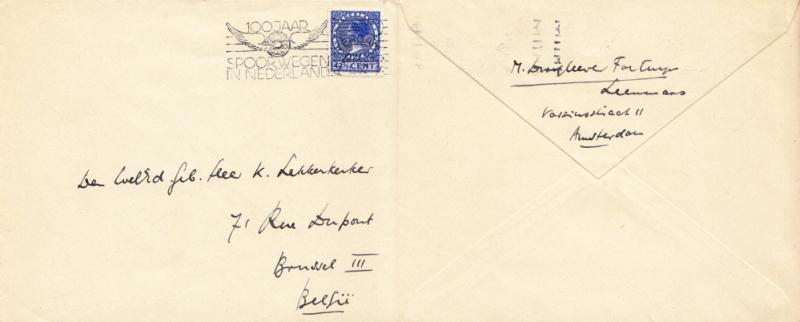 100 JAAR
SPOORWEGEN
IN NEDERLAND
CENT
Den WelEd. Geb. Heer K. Lekkerkerker
71 Rue Dupont
Brussel III
België
M. Droogleever Fortuyn
Leenmans
Vossiusstraat 11
Amsterdam